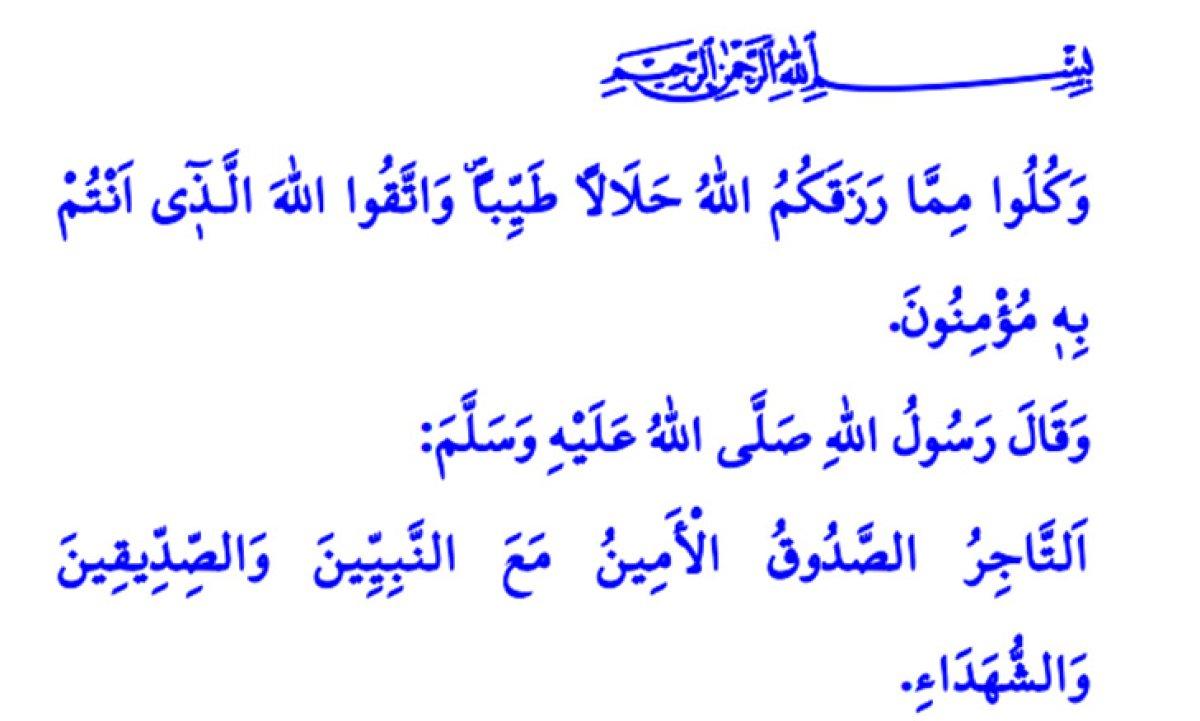 بِسْــــــــــمِ اللهِ الرَّحْمٰنِ الرَّحِيمِ
وَكُلُوا مِمَّا رَزَقَكُمُ اللهُ حَلَالاً طَيِّباًۖ وَاتَّقُوا اللهَ الَّـذ۪ٓى اَنْتُمْ
بِه۪ مُؤْمِنُونَ.
وَقَالَ رَسُولُ اللهِ صَلَّى اللهُ عَلَيْهِ وَسَلَّمَ:
اَلتَّاجِرُ الصَّدُوقُ الْأَمِينُ مَعَ النَّبِيِّينَ وَالصِّدِّيقِينَ
وَالشُّهَدَاءِ.